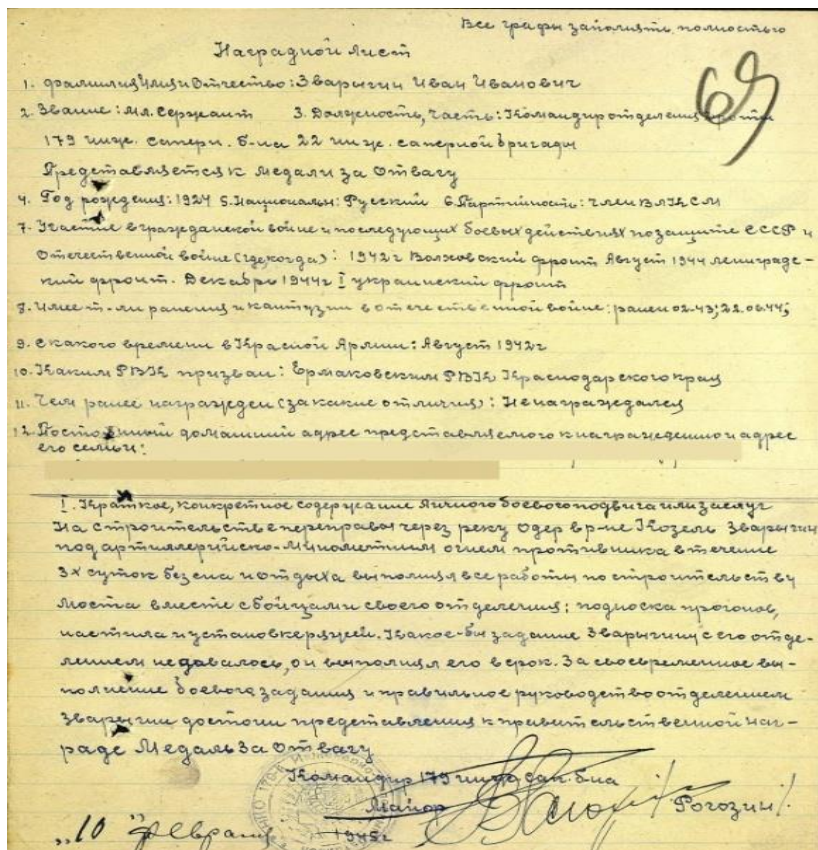 Все графы заполнять полностью
69
Наградной лист
1. Фамилия Имя и Отчество: Зварыгин Иван Иванович
2. Звание: Мл. Сержант 3. Должность, часть: Командир отделения роты
179 инж. саперн. б-на 22 инж. саперной бригады
Представляется к медали за Отвагу
4. Год рождения: 1924 5. Национальн: Русский 6. Партийность: член ВЛКСМ
7. Участие в гражданской войне и последующих боевых действиях по защите СССР и
Отечественной войне (где, когда): 1942г Волховский фронт Август 1944 ленинград-
ский фронт. Декабрь 1944г I украинский фронт
8. Имеет-ли ранения и кантузии в отечественной войне: ранен 02.43; 22.06.44;
9. С какого времени в Красной Армии: Август 1942г
10. Каким РВК призван: Ермаковским РВК Краснодарского края
11. Чем ранее награжден (за какие отличия): Не награждался
12. Постоянный домашний адрес представляемого к награждению и адрес
его семьи:
I. Краткое, конкретное содержание личного боевого подвига или заслуг
На строительстве переправы через реку Одер в р-не Козель Зварыгин
под артиллерийско-минометным огнем противника в течение
3х суток без сна и отдыха выполнял все работы по строительству
моста вместе с бойцами своего отделения: подноска прогонов,
настила и установке ряжей. Какое-бы задание Зварыгину с его отде-
лением не давалось, он выполнял его в срок. За своевременное вы-
полнение боевого задания и правильное руководство отделением
Зварыгин достоин представления к правительственной наг-
раде Медаль За Отвагу
Командир 179 инж. сап. б-на
Майор /Рогозин/.
"10" февраля 1945г